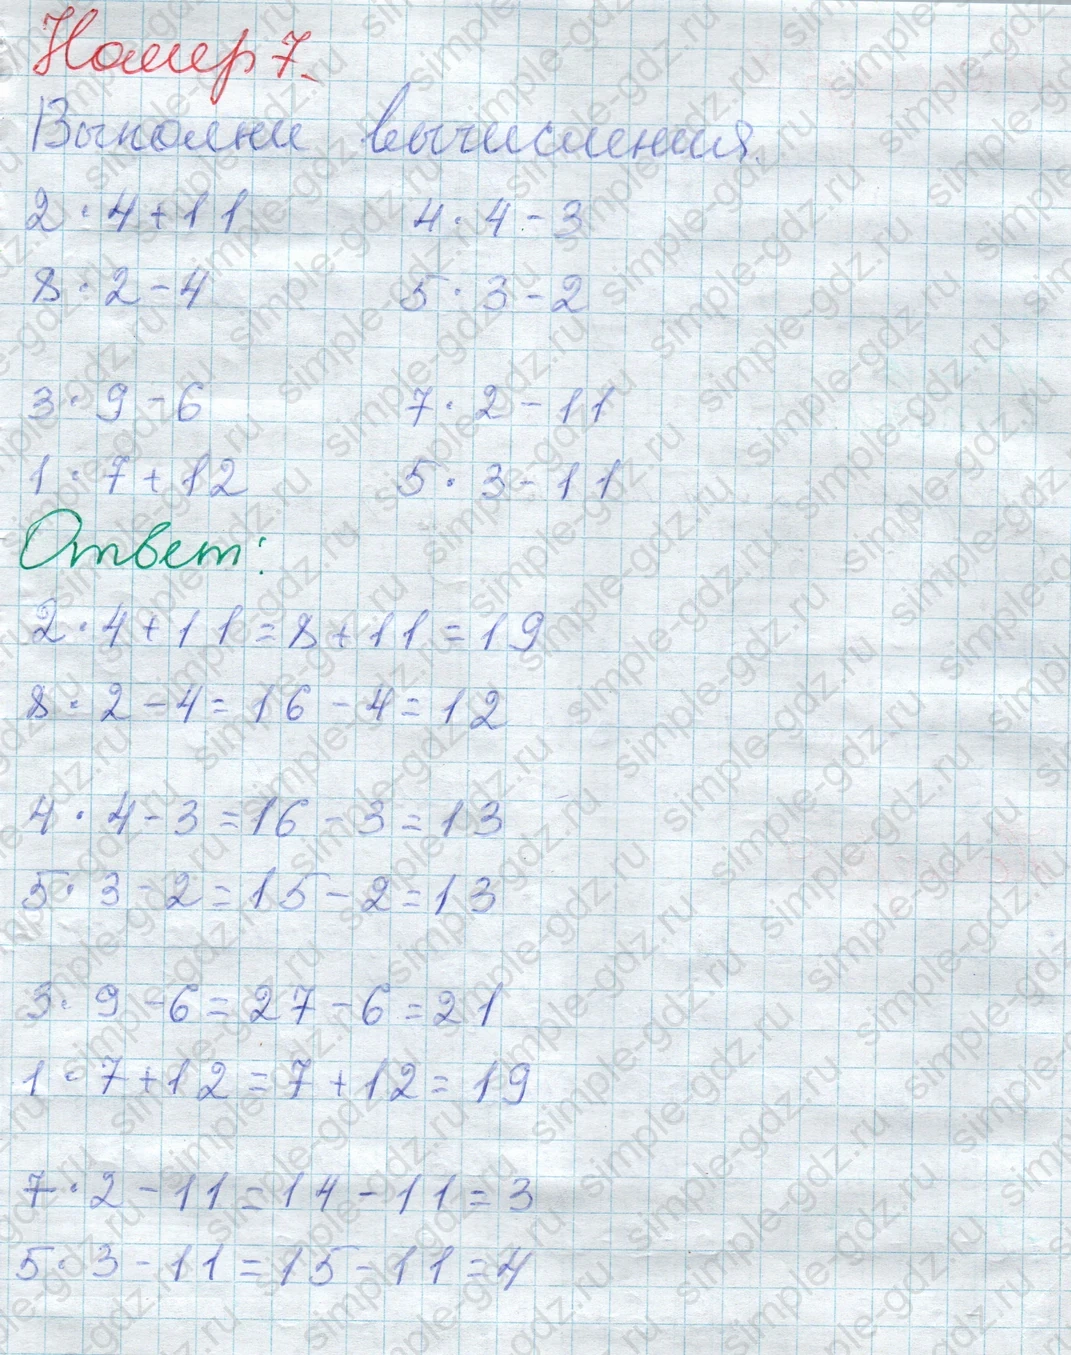 Номер 7.
Выполни вычисления.
2 · 4 + 11 4 · 4 - 3
8 · 2 - 4 5 · 3 - 2
3 · 9 - 6 7 · 2 - 11
1 · 7 + 12 5 · 3 - 11
Ответ:
2 · 4 + 11 = 8 + 11 = 19
8 · 2 - 4 = 16 - 4 = 12
4 · 4 - 3 = 16 - 3 = 13
5 · 3 - 2 = 15 - 2 = 13
3 · 9 - 6 = 27 - 6 = 21
1 · 7 + 12 = 7 + 12 = 19
7 · 2 - 11 = 14 - 11 = 3
5 · 3 - 11 = 15 - 11 = 4
simple-gdz.ru